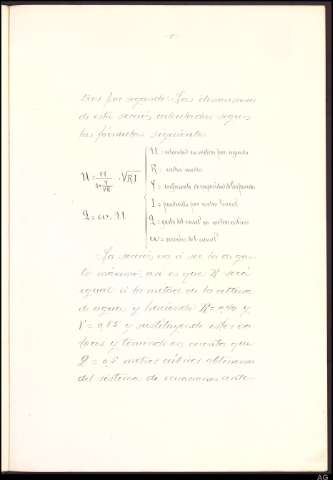 tros por segundo. Las dimensiones
de esta sección calculadas según
las fórmulas siguientes
U = 87 / 1+ γ/√R · √RI
Q = ω. U
U = velocidad en metros por segundo
R = radio medio
γ = coeficiente de rugosidad
I = pendiente por metro lineal
Q = gasto del canal en metros cúbicos
ω = sección del canal
La sección va á ser la de
máximo, así es que R será
igual á la mitad de la altura
de agua, y haciendo R = 0,40 y
γ = 0,85 y sustituyendo estos va-
lores y teniendo en cuenta que
Q = 0,8 metros cúbicos obtenemos
del sistema de ecuaciones ante-
AG